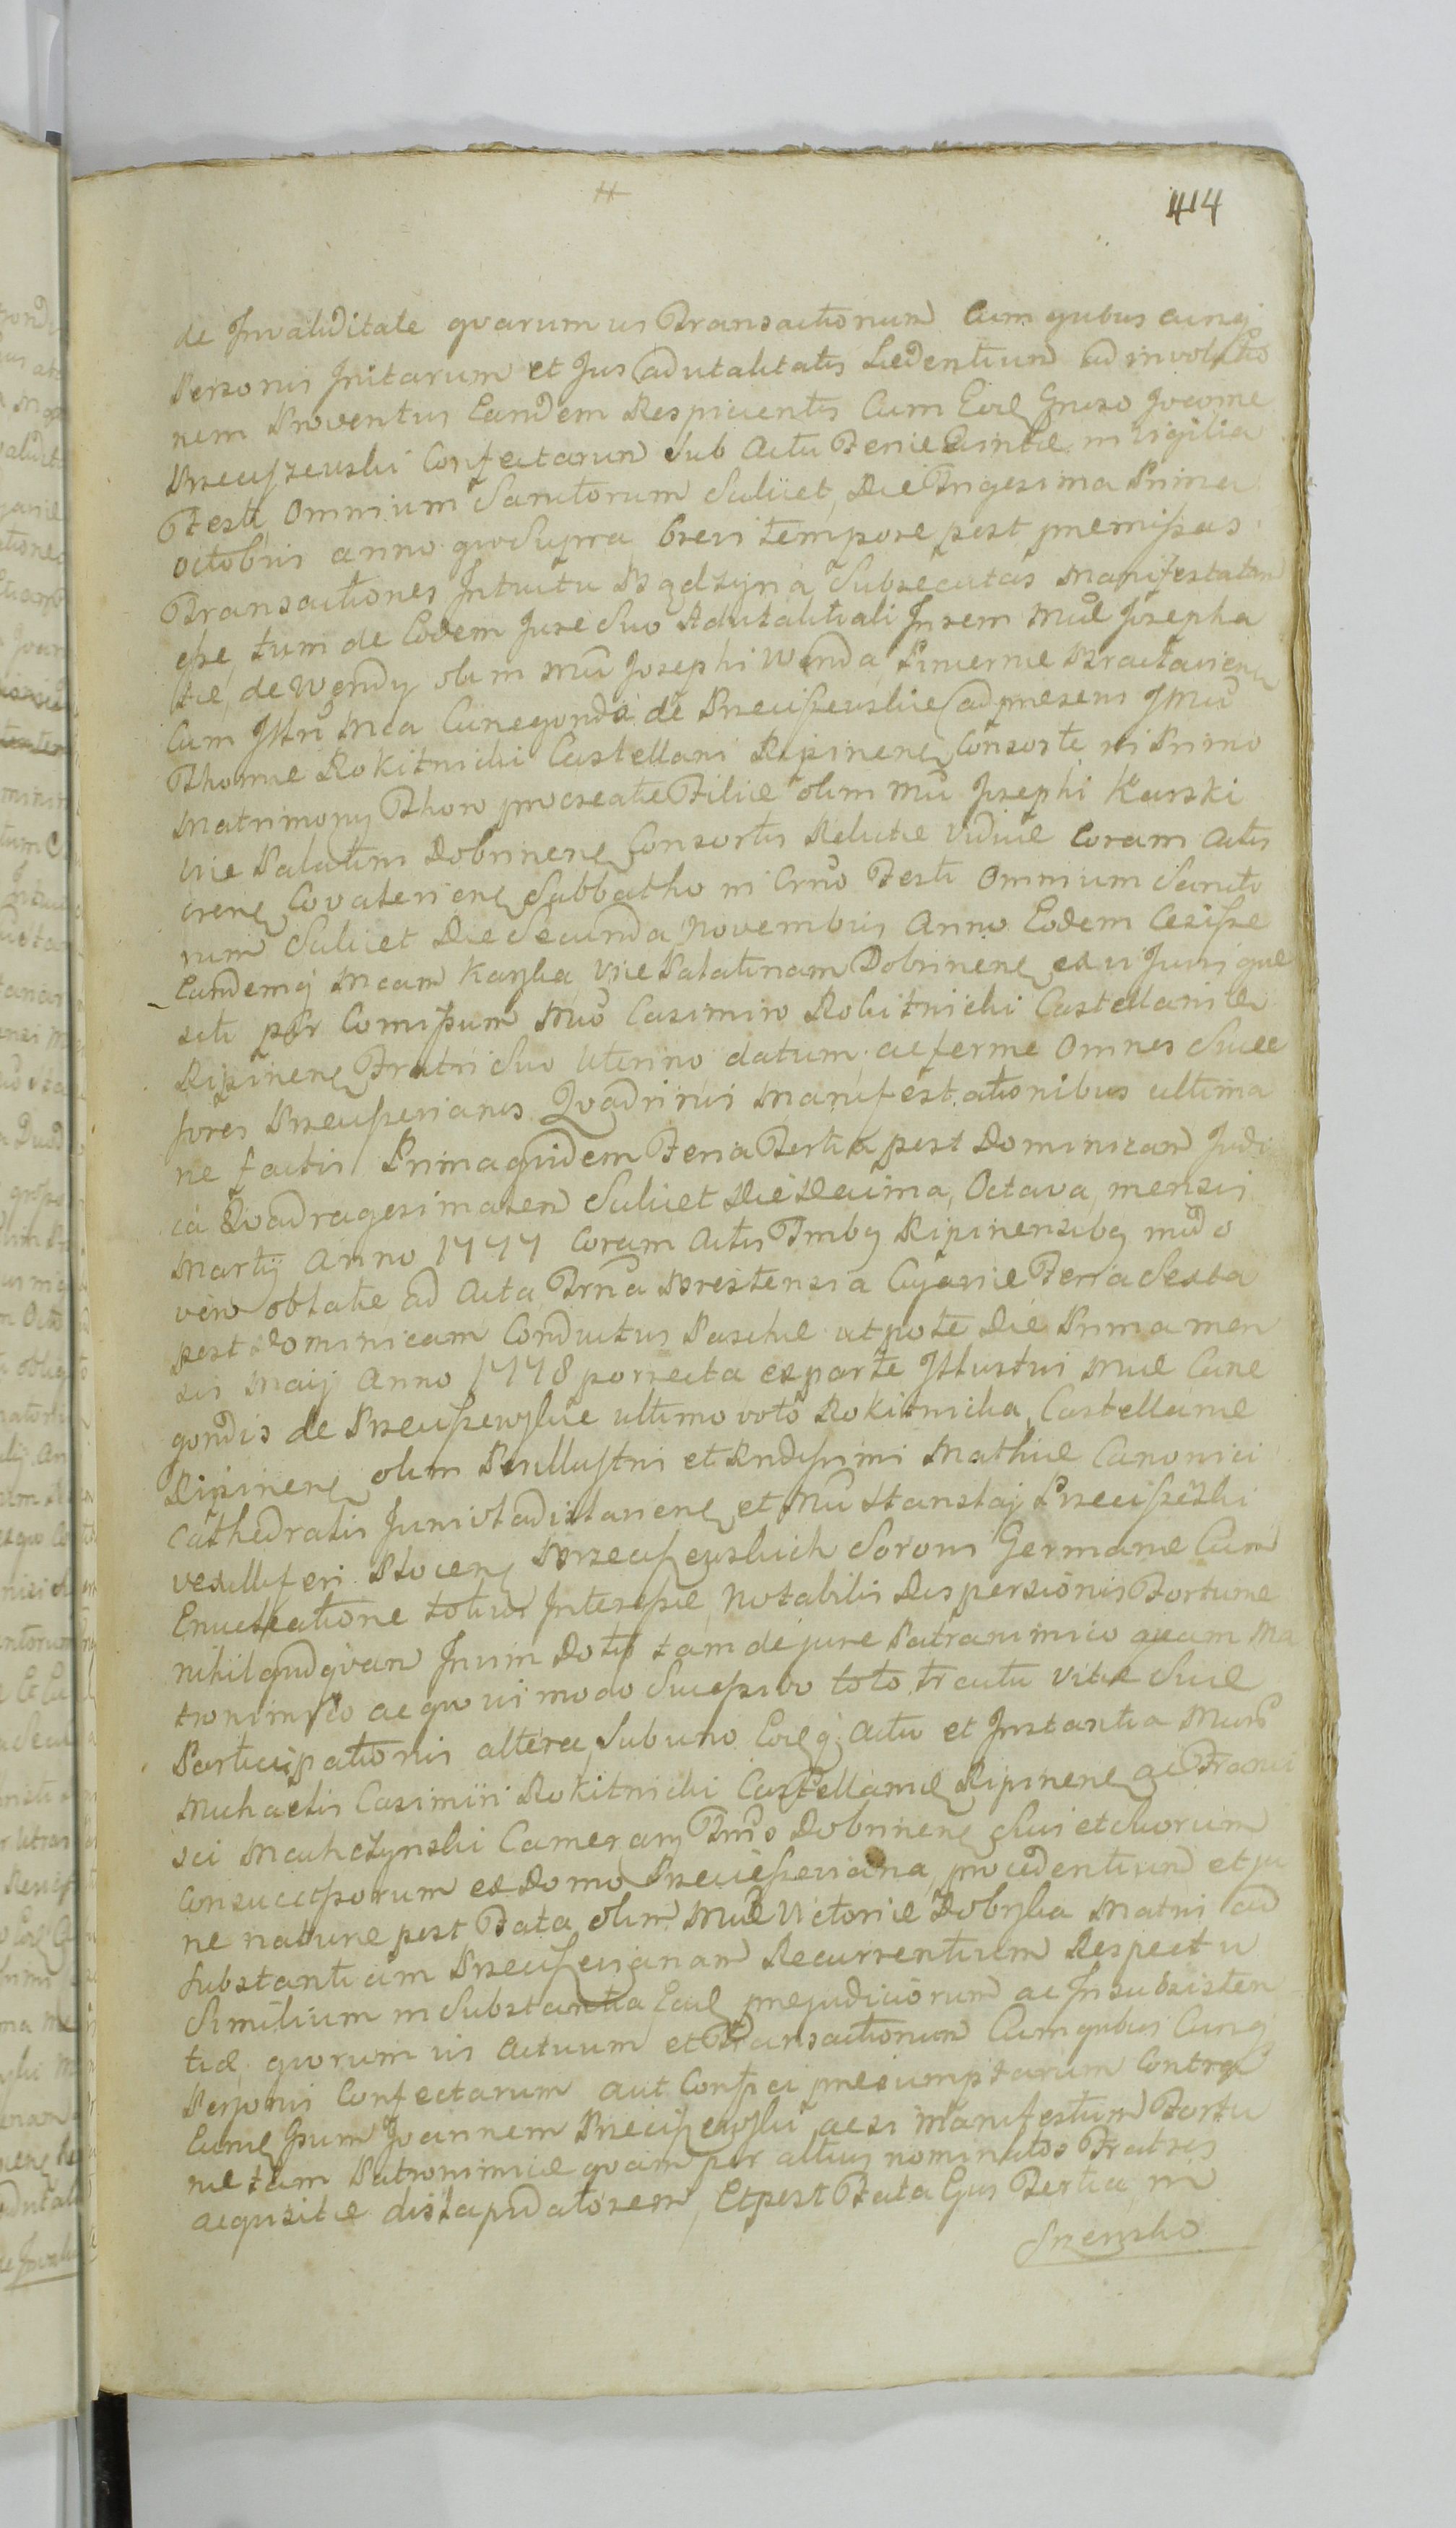 414
de Invaliditate quarumvis Transactionum Cum quibus cunq
Personis Initarum et Jus advitalitatis Ledentium ad involutio
nem Proventus Eandem Respicientis Cum Eod Gnoso Joanne
Przeciszewski Confectarum Sub Actu Feriae Quintae in vigilia
Festi Omnium Sanctorum Scilicet, Die Trigesima Prima
octobris anno quo Supra brevi tempore post premissas
Transactiones Intuitu Bądzyna Subsecutas Manifestatam
esse, tum de Eodem Jure Suo Advitalitiali In rem Mae Josepha
tae, de Wendy olim Mci Josephi Wenda, Pincernae
Cum Illri Mca Cunegonda de Przeciszewskie ad presens JMci
Thomae Rokitnicki Castellani Ripinens Consorte in Primo
Matrimony Thoro procreatae Filiae olim Mci Josephi Karski
Vice Palatini Dobrinens Consortis Relictae Viduae Coram Actis
crens Covaleviens Sabbatho in Crno Festi Omnium Sancto
rum Scilicet Die Secunda Novembris Anno Eodem Cesisse
Eandemq Mcam Karska Vice Palatinam Dobrinens ex vi Juris quae
siti per Comissum Mco Casimiro Rokitnicki Castellanidae
Ripinens Fratri Suo Uterino datum, ac ferme Omnes Succe
ssores Przeciszeviano Quadrinis Manifestationibus ultima
ne factis Prima quidem Feria Tertia post Dominicam Judi
ca Quadragesimalem Scilicet Die Decima, Octava, mensis
Martij Anno 1777 Coram Actis Trnibq Ripinensibq modo
vero oblatae ad Acta Trria Brestensia Cujaviae Feria Sexta
post Dominicam Conductus Paschae utpote Die Prima men
sis Maij Anno 1778 porrecta ex parte Illustris Mae Cune
gondis de Przeciszewskie ultimo voto Rokitnicka, Castellanae
Ripinens olim Perillustris et Rndissimi Mathiae Canonici
Cathedralis Junivladislaviens et Mci Stanslai Przeciszewski
vexilliferi Plocens Przeciszewskich Soroni Germanae Cum
Enucleatione totius Interesse, Notabilis Dispersionis Fortunae
nihil quidquam In vim Dotis tam de jure Patronimico quam Ma
tronimico ac quovis modo Successivo toto tractu Vitae Suae
Participationis altera, Sub uno Eodq Actu et Instantia Mcor
Michaelis Casimiri Rokitnicki Castellanidae Ripinens ac Franci
sci Machczynski Camerarij Trris Dobrinens Sui et Suorum
Consuccessorum ex Domo Przeciszeviana, procedentium et ju
re naturae post Fata olim Mae Victoriae Dobrska Matris ad
Substantiam Przeciszevianam Recurrentium Respectu
Similium in Substantia Ead prejudiciorum ac Insubsisten
tiae, quorumvis Actuum et Transactionum Cum quibus Cunq
Personis Confectarum aut Confici presumptarum Contra
Eund Gnum Joannem Przeciszewski, ac si Manifestum Fortu
nae tam Patronimicae quam per altius nominatos Fratres
acquisitae dilapidatorem, Et post Fata Ejus Tertia, in